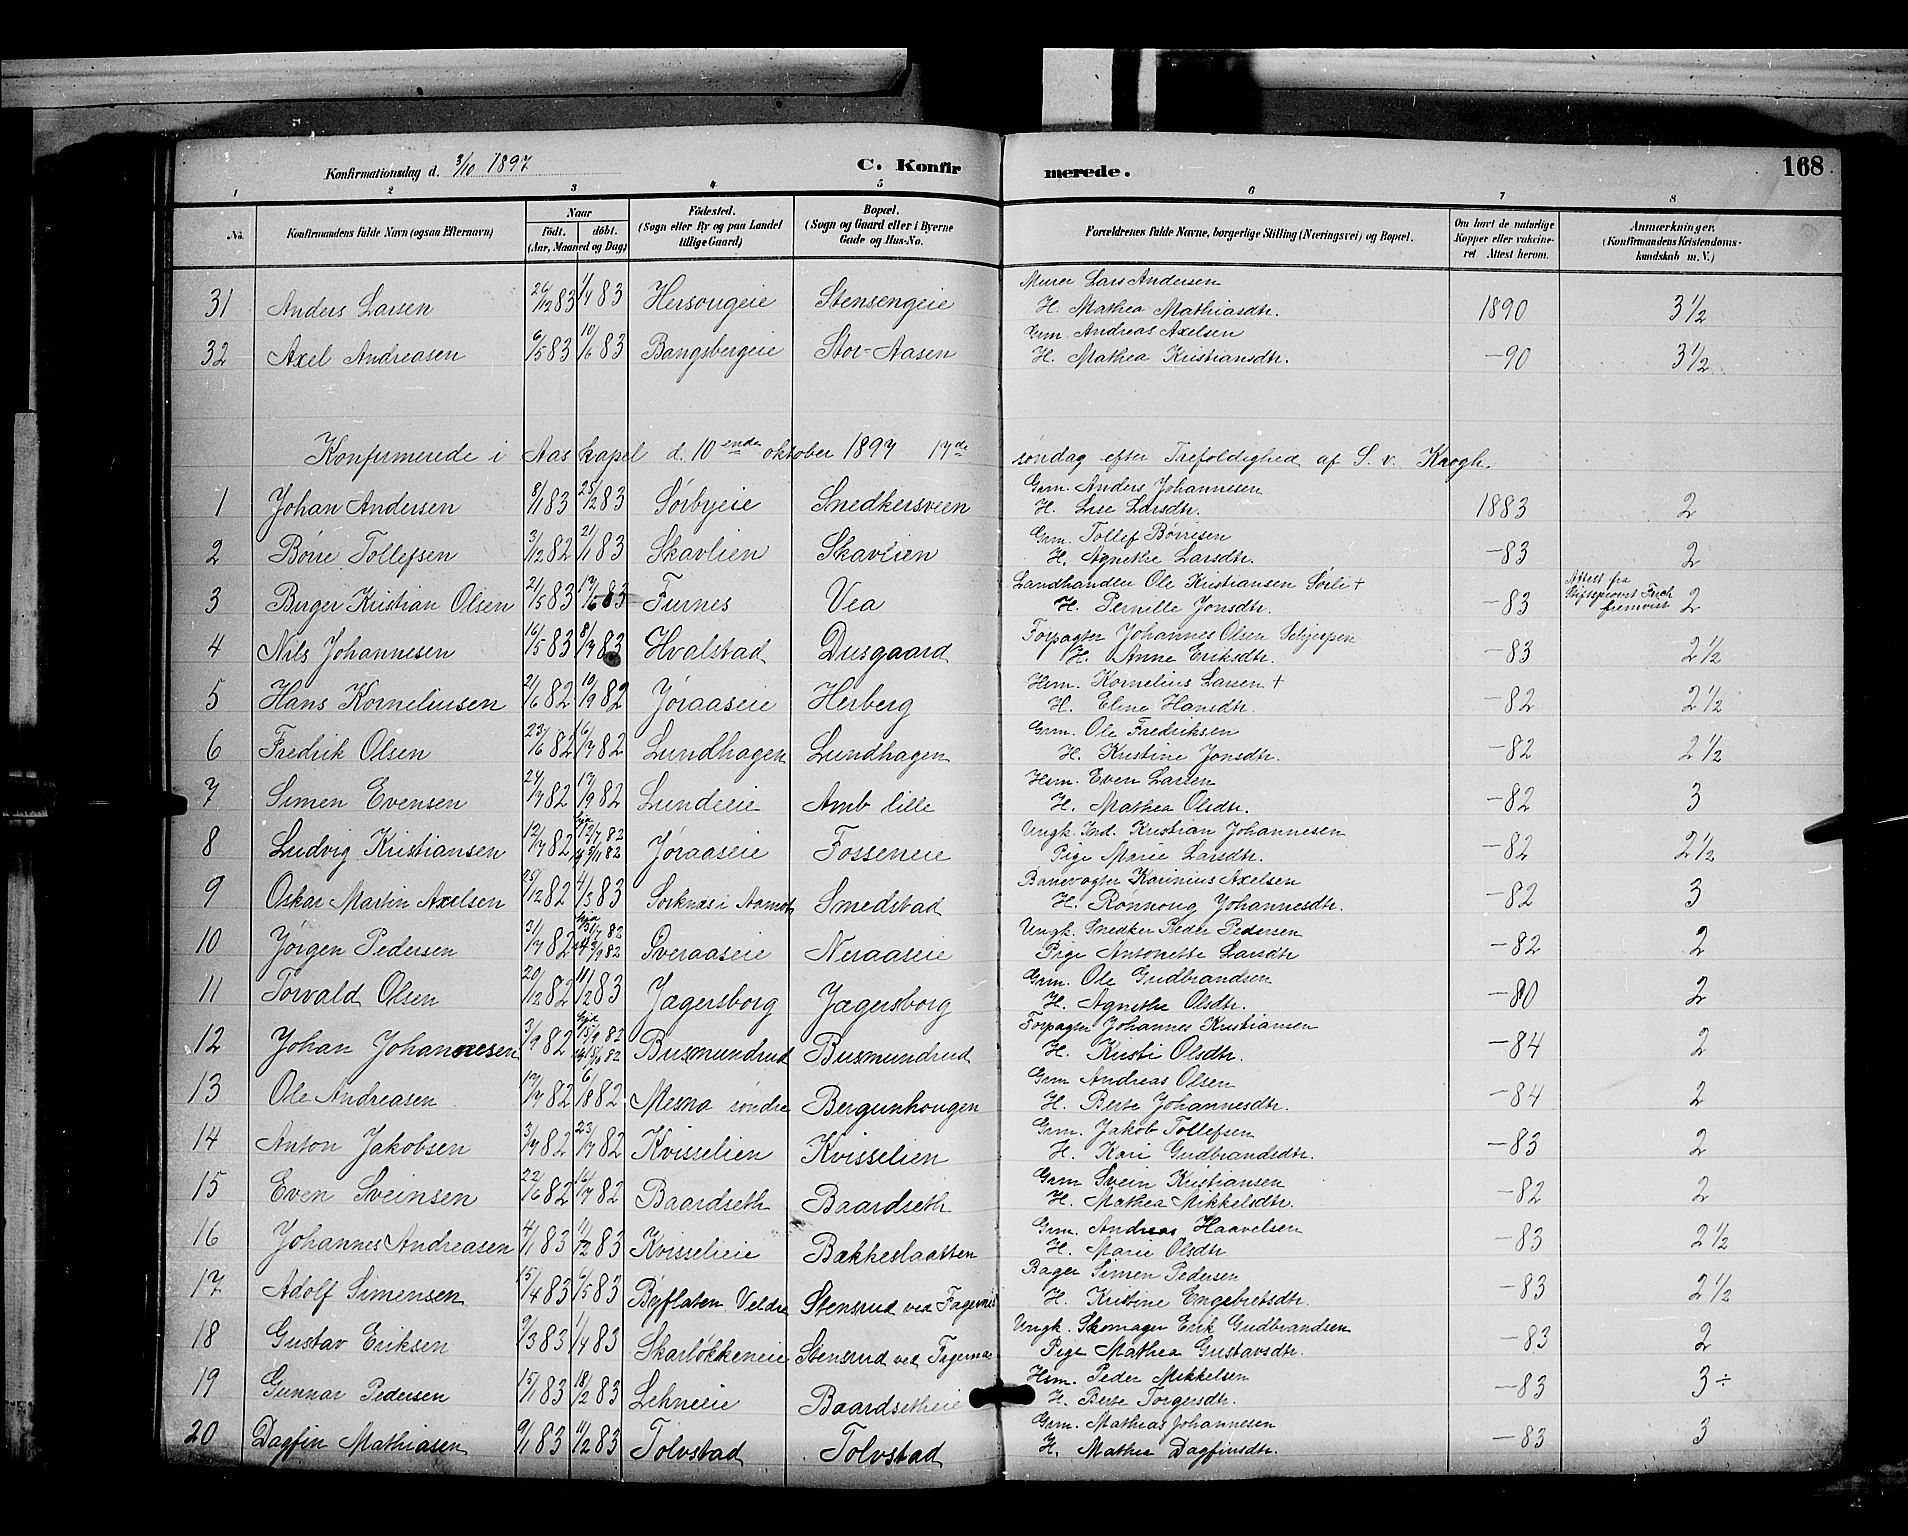 Konfirmationsdag d. 3/10 1897 C. Konfirmerede. 168
1 2 3 4 5 6 7 8
No. Konfirmandens fulde Navn (ogsaa Efternavn) Naar Födt. döbt. (Aar, Maaned og Dag) Födested. (Sogn eller By og paa Landet tillige Gaard) Bopæl. (Sogn og Gaard eller i Byerne Gade og Hus-No. Forældrenes fulde Navne, borgerlige Stilling (Næringsvei) og Bopæl. Om havt de naturlige Kopper eller vaccineret Attest herom. Anmærkninger. (Konfirmandens Kristendomskundskab m. V.)
Murer Lars Andersen
31 Anders Larsen 83 1/4 83 Hersougeie Stensengeie H. Mathea Mathiasdtr. 1890 3 1/2
Grm. Andreas Axelsen
32 Axel Andreasen 6/5 83 10/6 83 Bangsbergeie Stor-Aasen H. Mathea Kristiansdtr. -90 3 1/2
Konfirmerede i Aas kapel d. 10ende oktober 1897 17de søndag efter Trefoldighed af S. v. Krogh.
Grm. Anders Johannesen
1 Johan Andersen 8/1 83 25/2 83 Sørbyeie Snedkersveen H. Lise Larsdtr. 1883 2
Grm. Tollef Børresen
2 Børre Tollefsen 3/12 82 21/1 83 Skavlien Skavlien H. Agnethe Larsdtr. -83 2
Landhandler Ole Kristiansen Sørli + Attest fra
3 Birger Kristian Olsen 21/5 83 17/6 83 Furnes Vea H. Pernille Jonsdtr. -83 Stiftsprovst fremvist 2
Forpagter Johannes Olsen Schjerpen
4 Nils Johannesen 16/5 83 8/7 83 Hvalstad Dusgaard H. Anne Eriksdtr. -83 2 1/2
Hsm. Kornelius Larsen +
5 Hans Korneliusen 21/6 82 10/9 82 Jøraaseie Herberg H. Eline Hansdtr. -82 2 1/2
Grm. Ole Fredriksen
6 Fredrik Olsen 23/6 82 16/7 82 Lundhagen Lundhagen H. Kristine Jonsdtr. -82 2 1/2
Hsm. Even Larsen
7 Simen Evensen 24/7 82 17/9 82 Lundeeie Amb lille H. Mathea Olsdtr. -82 3
Ungk. Ind. Kristian Johannesen
8 Ludvig Kristiansen 12/7 82 hjd 12/7 82 5/11 82 Jøraaseie Fosseneie Pige Marie Larsdtr. -82 2 1/2
Banevogter Karinius Axelsen
9 Oskar Martin Axelsen 25/12 82 4/3 83 Sorknæs i Aamot Smedstad H. Ronnoug Johannesdtr. -82 3
Ungk. Snedker Peder Pedersen
10 Jørgen Pedersen 31/7 82 hjd 31/7 82 3/9 82 Sveraaseie Neraaseie Pige Antonette Larsdtr -82 2
Grm. Ole Gudbrandsen
11 Torvald Olsen 20/12 82 11/2 83 Jægersborg Jægersborg H. Agnethe Olsdtr. -90 2
Forpagter Johannes Kristiansen
12 Johan Johannesen 3/9 82 hjd 15/9 82 82 Busmundrud Busmundrud H. Kristi Olsdtr. -84 2
Grm Andreas Olsen
13 Ole Andreasen 17/7 82 6/8 82 Mesna søndre Bergunhougen H. Berte Johannesdtr. -84 2
Grm. Jakob Tollefsen
14 Anton Jakobsen 3/7 82 23/7 82 Kvisselien Kvisselien H. Kari Gudbrandsdtr. -83 2
Grm Svein Kristiansen
15 Even Sveinsen 22/6 82 16/7 82 Baardseth Baardseth H. Mathea Mikkelsdtr. -82 2
Grm. Andreas Haavelsen
16 Johannes Andreasen 4/1 83 11/2 83 Kvisselieie Bakkeslaatten H. Marie Olsdtr -83 2 1/2
Bager Simen Pedersen
17 Adolf Simensen 15/4 83 6/5 83 Byflaten Veldre Stensrud ved Fagernæs H. Kristine Engebretsdtr. -83 2 1/2
Ungk. Skomager Erik Gudbrandsen
18 Gustav Eriksen 9/3 83 1/4 83 Skarløkkeneie Stensrud ved Fagernæs Pige Mathea Gustavsdtr. -83 2
Hsm. Peder Mikkelsen
19 Gunnar Pedersen 15/1 83 18/2 83 Lehneeie Baardsetheie H. Berte Torgersdtr. -83 3÷
Grm. Mathias Johannesen
20 Dagfin Mathiasen 9/1 83 11/2 83 Tolvstad Tolvstad H. Mathea Dagfinsdtr. -83 3